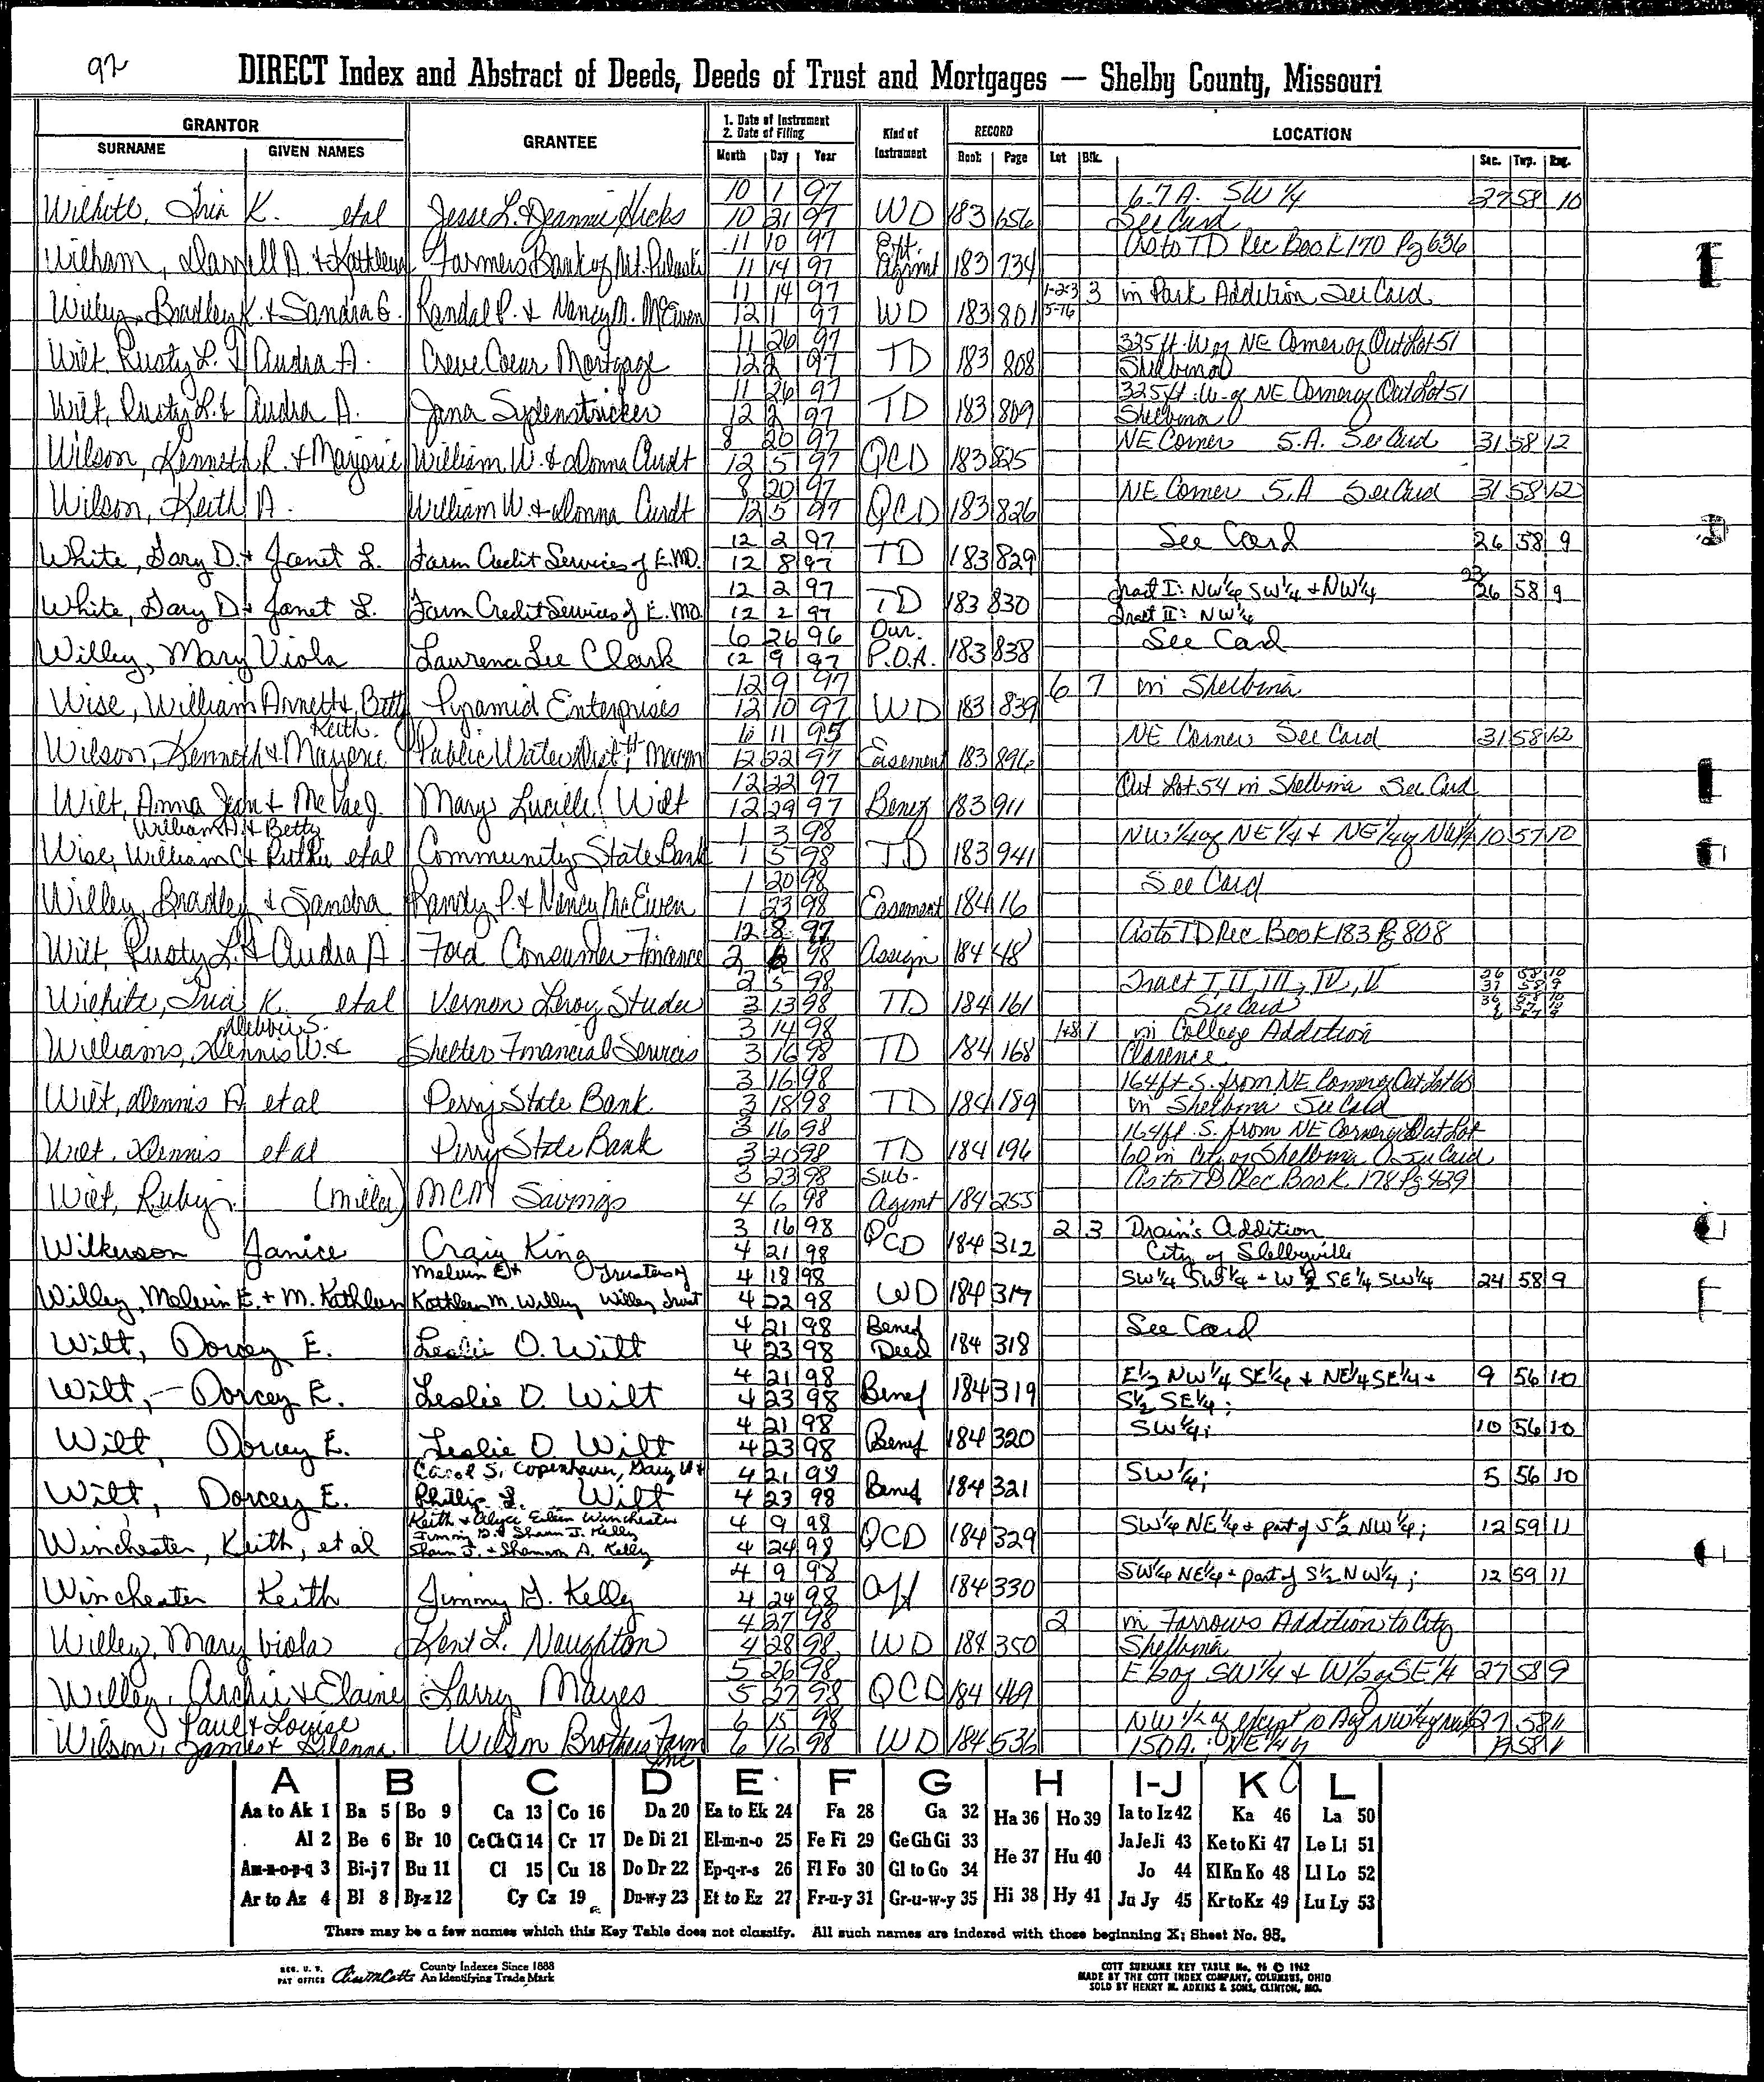 92
DIRECT Index and Abstract of Deeds, Deeds of Trust and Mortgages — Shelby County, Missouri
GRANTOR
SURNAME GIVEN NAMES
GRANTEE
1. Date of Instrument
2. Date of Filing
Month Day Year
Kind of Instrument
RECORD
Book Page
LOCATION
Lot Blk. Sec. Twp. Rng.
10 1 97 6.7 A. SW 1/4 27 58 10
Wilhite, Iria K. etal Jesse L. & Deannie Hicks 10 21 97 WD 183 656 See Card
11 10 97 Ext. As to TD Rec Book 170 Pg 636
Witham, Darrell D. + Kathleen Farmers Bank of Mt. Pulaski 11 14 97 Agimt 183 734
11 14 97 1-2-3 3 in Park Addition See Card
Willey, Bradley K. + Sandra G. Randal P. + Nancy M. McEwen 12 1 97 WD 183 801 5-76
11 26 97 325 ft. W of NE Corner of Out Lot 51
Wilt, Rusty L. & Audra A. Creve Coeur Mortgage 12 2 97 TD 183 808 Shelbina
11 26 97 325 ft. W. of NE Corner of Out Lot 51
Wilt, Rusty L. & Audra A. Jana Sydenstricker 12 2 97 TD 183 809 Shelbina
8 20 97 NE Corner 5.A. See Card 31 58 12
Wilson, Kenneth R. + Marjorie William W. + Donna Curdt 12 5 97 QCD 183 825
8 20 97 NE Corner 5.A See Card 31 58 12
Wilson, Keith A. William W. + Donna Curdt 12 5 97 QCD 183 826
12 2 97 See Card 26 58 9
White, Gary D. + Janet L. Farm Credit Services of E. MO. 12 8 97 TD 183 829
12 2 97 Tract I: NW 1/4 SW 1/4 + NW 1/4 23 26 58 9
White, Gary D + Janet L. Farm Credit Services of E. MO. 12 2 97 TD 183 830 Tract II: NW 1/4
6 26 96 Dur. See Card
Willey, Mary Viola Laurena Lee Clark 12 9 97 P.O.A. 183 838
12 9 97 6 7 in Shelbina
Wise, William Arnett & Betty Pyramid Enterprises 12 10 97 WD 183 839
Keith. 6 11 95 NE Corner See Card 31 58 12
Wilson, Kenneth & Marjorie Public Water Dist #1 Macon 12 22 97 Easement 183 896
12 22 97 Out Lot 54 in Shelbina See Card
Wilt, Anna Jean + McVae J. Mary Lucille Wilt 12 29 97 Benef 183 911
William D. + Betty 1 3 98 NW 1/4 of NE 1/4 + NE 1/4 of NW 1/4 10 57 10
Wise, William C + Ruthie etal Community State Bank 1 5 98 TD 183 941
1 20 98 See Card
Willey, Bradley + Sandra Randy P. + Nancy McEwen 1 23 98 Easement 184 16
12 8 97 As to TD Rec Book 183 Pg 808
Wilt, Rusty L. & Audra A Ford Consumer Finance 2 6 98 Assign 184 48
2 5 98 Tract I, II, III, IV, V
Wilhite, Iria K. etal Vernon Leroy Studer 3 13 98 TD 184 161 See Card
Debbie S. 3 14 98 1+8 1 in College Addition
Williams, Dennis W. & Shelter Financial Services 3 16 98 TD 184 168 Clarence
3 16 98 164 ft S. from NE Corner of Out Lot 60
Wilt, Dennis A etal Perry State Bank 3 18 98 TD 184 189 in Shelbina See Card
3 16 98 164 ft. S. from NE Corner of Out Lot
Wilt, Dennis etal Perry State Bank 3 20 98 TD 184 196 60 in City of Shelbina See Card
3 23 98 Sub- As to TD Rec Book 178 Pg 439
Wilt, Ruby (Miller) MCM Savings 4 6 98 Agimt 184 255
3 16 98 2 3 Drain's Addition
Wilkerson Janice Craig King 4 21 98 QCD 184 312 City of Shelbyville
Melvin E + Trustees of 4 18 98 SW 1/4 SW 1/4 + W 1/2 SE 1/4 SW 1/4 24 58 9
Willey, Melvin E. + M. Kathleen Kathleen M. Willey Willey Trust 4 22 98 WD 184 317
4 21 98 Benef See Card
Wilt, Dorcey E. Leslie O. Wilt 4 23 98 Deed 184 318
4 21 98 E 1/2 NW 1/4 SE 1/4 + NE 1/4 SE 1/4 + 9 56 10
Wilt, Dorcey E. Leslie O. Wilt 4 23 98 Benef 184 319 S 1/2 SE 1/4;
4 21 98 SW 1/4; 10 56 10
Wilt, Dorcey E. Leslie O. Wilt 4 23 98 Benef 184 320
Carol S. Copenhaver, Gary W + 4 21 98 SW 1/4; 5 56 10
Wilt, Dorcey E. Phillip L. Wilt 4 23 98 Benef 184 321
Keith + Alyce Eileen Winchester 4 9 98 SW 1/4 NE 1/4 + part of S 1/2 NW 1/4; 12 59 11
Jimmy D. + Shawn J. Kelly
Winchester, Keith, et al Shawn J. + Shannon A. Kelly 4 24 98 QCD 184 329
4 9 98 SW 1/4 NE 1/4 + part of S 1/2 NW 1/4; 12 59 11
Winchester Keith Jimmy D. Kelly 4 24 98 Aff 184 330
4 27 98 2 in Farrows Addition to City
Willey, Mary Viola Kent L. Naughton 4 28 98 WD 184 350 Shelbina
5 26 98 E 1/2 of SW 1/4 & W 1/2 of SE 1/4 27 58 9
Willey, Archie & Elaine Larry Mayes 5 27 98 QCD 184 469
Paul + Louise 6 15 98 NW 1/2 of except 10 A of NW 1/4 of NW 27 58 11
Wilson, James & Glenna Wilson Brothers Farm Inc 6 16 98 WD 184 536 150 A.; NE 1/4
A B C D E F G H I-J K L
Aa to Ak 1 Ba 5 Bo 9 Ca 13 Co 16 Da 20 Ea to Ek 24 Fa 28 Ga 32 Ha 36 Ho 39 Ia to Iz 42 Ka 46 La 50
Al 2 Be 6 Br 10 Ce Ch Ci 14 Cr 17 De Di 21 El-m-n-o 25 Fe Fi 29 Ge Gh Gi 33 He 37 Hu 40 Ja Je Ji 43 Ke to Ki 47 Le Li 51
Am-n-o-p-q 3 Bi-j 7 Bu 11 Cl 15 Cu 18 Do Dr 22 Ep-q-r-s 26 Fl Fo 30 Gl to Go 34 Jo 44 Kl Kn Ko 48 Ll Lo 52
Ar to Az 4 Bl 8 By-z 12 Cy Cz 19 Du-w-y 23 Et to Ez 27 Fr-u-y 31 Gr-u-w-y 35 Hi 38 Hy 41 Ju Jy 45 Kr to Kz 49 Lu Ly 53
There may be a few names which this Key Table does not classify. All such names are indexed with those beginning X; Sheet No. 95.
REG. U. S. PAT OFFICE County Indexes Since 1888
An Identifying Trade Mark
COTT SURNAME KEY TABLE No. 96 © 1962
MADE BY THE COTT INDEX COMPANY, COLUMBUS, OHIO
SOLD BY HENRY M. ADKINS & SONS, CLINTON, MO.